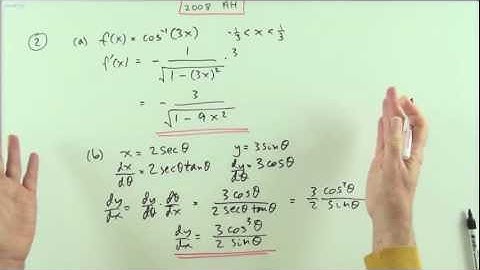 2008 AH
2 (a) f(x) = cos⁻¹(3x) -1/3 < x < 1/3
f'(x) = - 1/√(1-(3x)²) · 3
= - 3/√(1-9x²)
(b) x = 2secθ y = 3sinθ
dx/dθ = 2secθtanθ dy/dθ = 3cosθ
dy/dx = dy/dθ · dθ/dx = 3cosθ/2secθtanθ = 3/2 cos³θ/sinθ
dy/dx = 3cos³θ/2sinθ